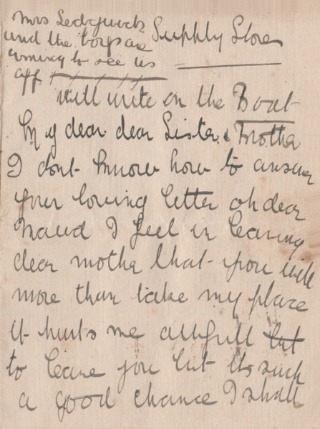 Mrs Sedgwick
and the boys are
coming to see us
off
Supply Store
will write on the Boat
My dear dear Sister & Brother
I dont know how to answer
your loving letter oh dear
Maud I feel in leaving
dear mother that you will
more than take my place
it hurts me awfull but
to leave you but its such
a good chance I shall